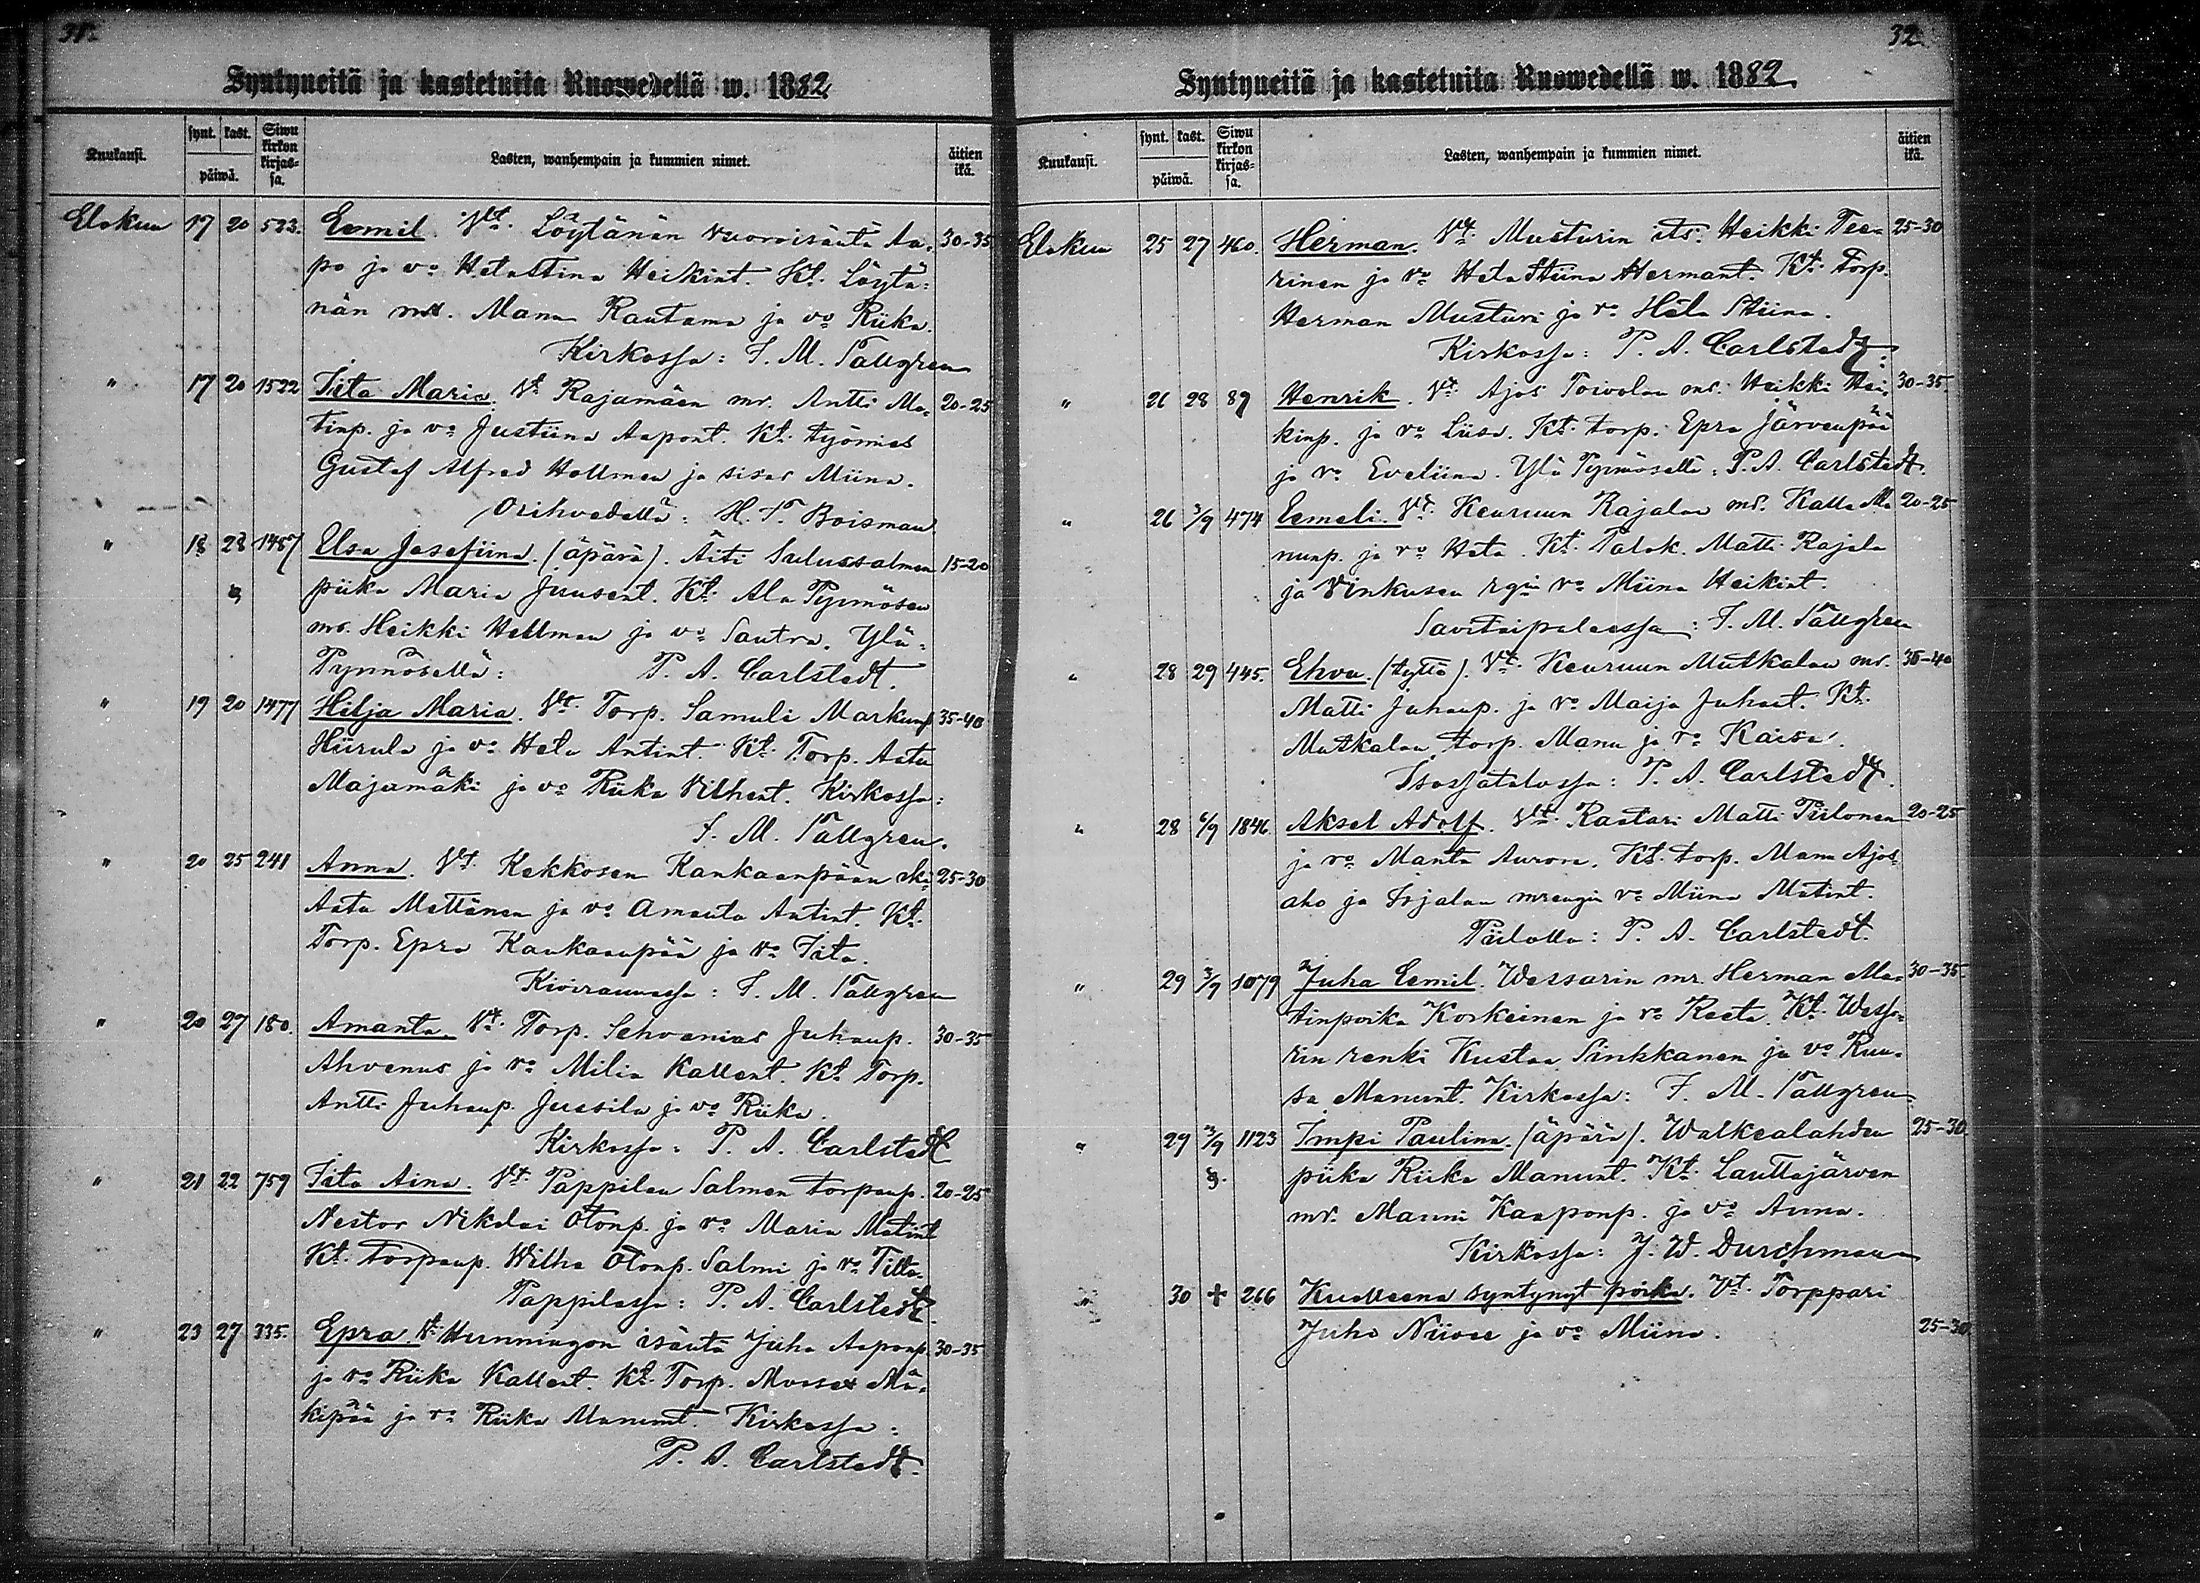 31.
Syntyneitä ja kastetuita Ruowedellä w. 1882
Kuukausi. synt. kast. päiwä. Siwu kirkon kirjassa. Lasten, wanhempain ja kummien nimet. äitien ikä.
Elokuu 17 20 523. Eemil. Vt. Löytänän vuorisänta Aa- 30-35
po ja vo Hetastina Heikint. Kt. Löytä-
nän Manu Rautama ja vo Riika.
Kirkossa: F. M. Tallgren
" 17 20 1522 Iita Maria. Vt. Rajamäen mr. Antti Ma- 20-25
tinp. ja vo Justiina Aapont. Kt. työmies
Gustaf Alfred Hollmen ja sisar Miina.
Orihvedellä: H. F. Boisman
" 18 28 1487 Elsa Josefiina. (äpärä). Äiti Sulussalmen 15-20
piika Maria Juusent. Kt. Ala Pynnösen
mr. Heikki Hellman ja vo Santra. Ylä-
Pynnösellä: P. A. Carlstedt.
" 19 20 1477 Hilja Maria. Vt. Torp. Samuli Markunp. 35-40
Hiirula ja vo Heta Antint. Kt. Torp. Aatu
Majamäki ja vo Riika Vilhent. Kirkossa:
F. M. Tallgren.
" 20 25 241 Anna. Vt. Kekkosen Kankaanpään 25-30
Aatu Mettänen ja vo Amanta Antint. Kt.
Torp. Epra Kankaanpää ja vo Iita.
Kivirannassa: F. M. Tallgren
" 20 27 180. Amanta. Vt. Torp. Sehvanias Juhanp. 30-35
Ahvenus ja vo Milia Kallent. Kt. Torp.
Antti Juhanp. Jussila ja vo Riika.
Kirkossa: P. A. Carlstedt
" 21 22 759 Iita Aina. Vt. Pappilan Salmen torpanp. 20-25
Nestor Nikolai Otonp. ja vo Maria Matint
Kt. torpanp. Wilho Otonp. Salmi ja vo Tilta.
Pappilassa: P. A. Carlstedt.
" 23 27 335. Epra. Vt. Hunningon isäntä Juha Aaponp. 30-35
ja vo Riika Kallent. Kt. Torp. Mooses Mä-
kipää ja vo Riika Manunt. Kirkossa:
P. A. Carlstedt.
32
Syntyneitä ja kastetuita Ruowedellä w. 1882
Kuukausi. synt. kast. päiwä. Siwu kirkon kirjassa. Lasten, wanhempain ja kummien nimet. äitien ikä.
Elokuu 25 27 460. Herman. Vt. Musturin its. Heikki Tee- 25-30
rinen ja vo Heta Stiina Hermant. Kt. Torp.
Herman Musturi ja vo Heta Stiina.
Kirkossa: P. A. Carlstedt.
" 26 28 89 Henrik. Vt. Ajos Toivolan mr. Heikki Hei- 30-35
kinp. ja vo Liisa. Kt. torp. Epra Järvenpää
ja vo Eveliina. Ylä Pynnösellä: P. A. Carlstedt.
" 26 3/9 474 Eemeli. Vt. Keuruun Rajalan mr. Kalle Ma 20-25
nunp. ja vo Heta. Kt. Talok. Matti Rajala
ja Vinkusen rgin vo Miina Heikint.
Savitaipaleessa: F. M. Tallgren
" 28 29 445. Ehva. (tyttö). Vt. Keuruun Mutkalan mr. 35-40
Matti Juhanp. ja vo Maija Juhant. Kt.
Mutkalan torp. Manu ja vo Kaisa.
Isossatalossa: P. A. Carlstedt.
" 28 6/9 1846. Aksel Adolf. Vt. Rastari Matti Piilonen 20-25
ja vo Manta Aurora. Kt. torp. Manu Ajos-
aho ja Irjalan mrengin vo Miina Matint.
Piilolla: P. A. Carlstedt.
" 29 3/9 1079 Juha Eemil. Wessarin mr. Herman Ma- 30-35.
tinpoika Korkeinen ja vo Reeta. Kt. Wessa-
rin renki Kustaa Sinkkanen ja vo Ruu-
sa Manunt. Kirkossa: F. M. Tallgren
" 29 3/9 1123 Impi Paulina. (äpärä). Walkealahden 25-30.
piika Riika Manunt. Kt. Lauttajärven
mr. Manni Kaaponp. ja vo Anna.
Kirkossa: J. W. Durchman
" 30 + 266 Kuolleena syntynyt poika. Vt. Torppari
Juho Niivee ja vo Miina. 25-30